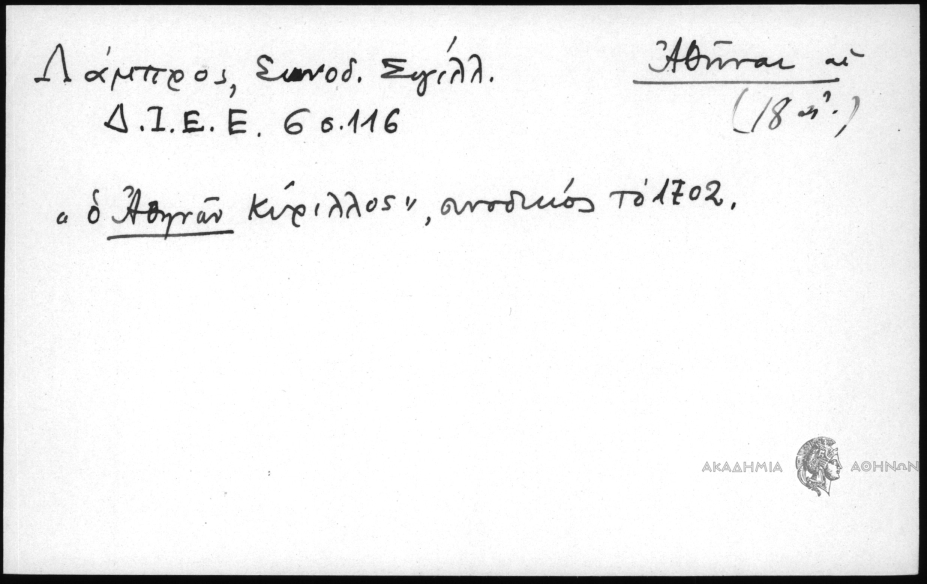 Λάμπρος, Συνοδ. Σιγίλλ.
Ἀθῆναι αἱ
Δ.Ι.Ε.Ε. 6 σ.116
(18 αἰ.)
"ὁ Ἀθηνῶν Κύριλλος", συνοδικός τὸ 1702.
ΑΚΑΔΗΜΙΑ ΑΘΗΝΩΝ